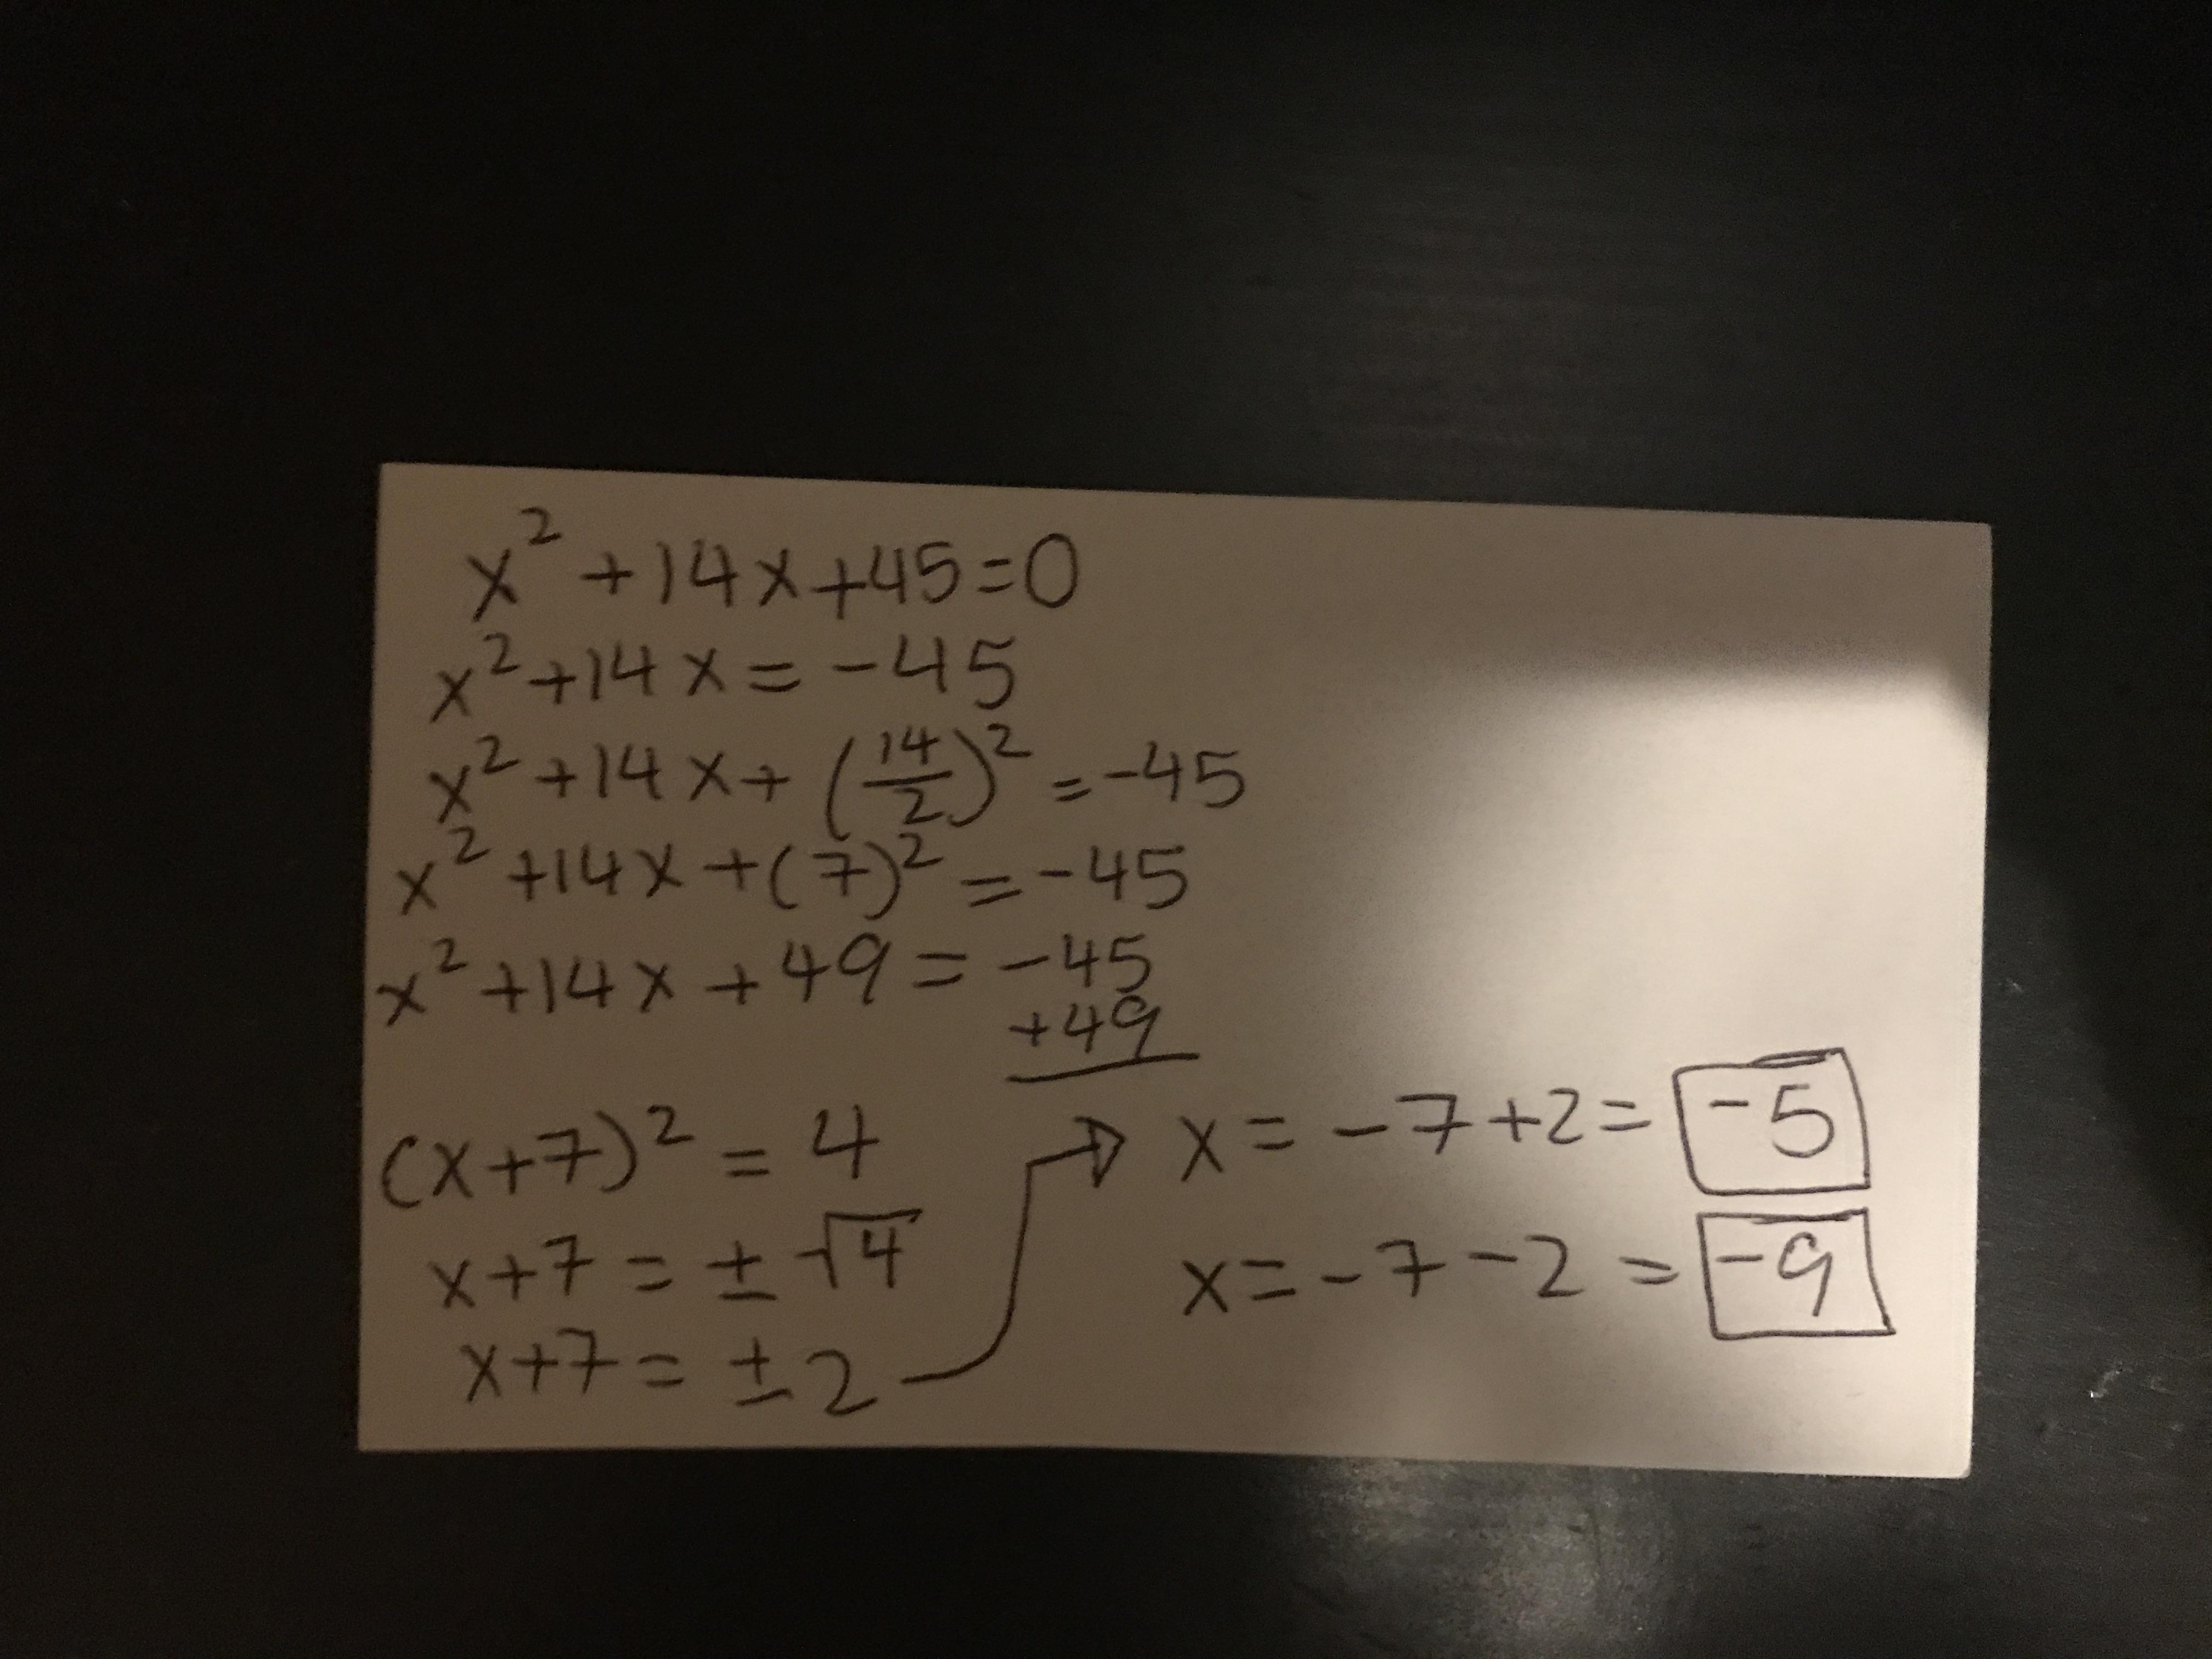 x² + 14x + 45 = 0
x² + 14x = -45
x² + 14x + (14/2)² = -45
x² + 14x + (7)² = -45
x² + 14x + 49 = -45
+49
(x+7)² = 4
x+7 = ± √4
x+7 = ± 2 →
x = -7+2 = -5
x = -7-2 = -9